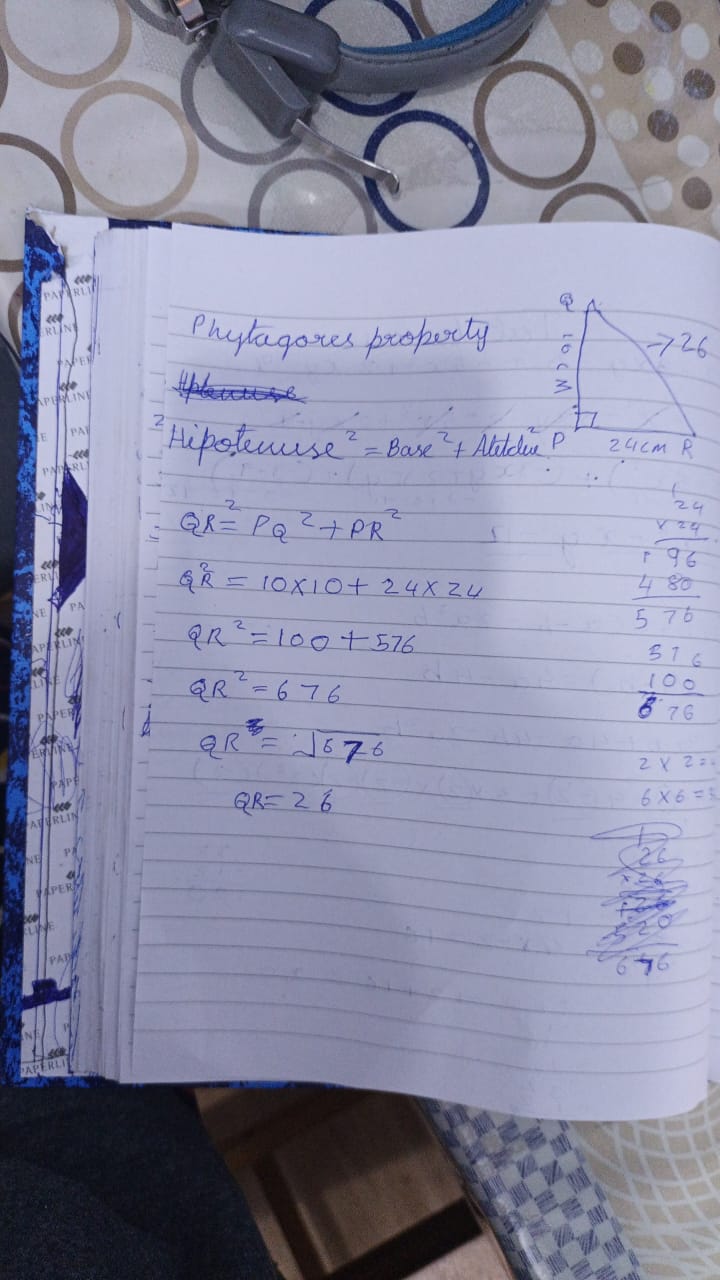 Phytagores property
Hipotenuse² = Base² +
Q
10cm
→ 26
P 24cm R
QR² = PQ² + PR²
QR² = 10×10 + 24×24
QR² = 100 + 576
QR² = 676
QR = √676
QR = 26
1
24
×24
96
480
576
576
100
676
2 × 2 =
6 × 6 =
26
676
PAPERLINE